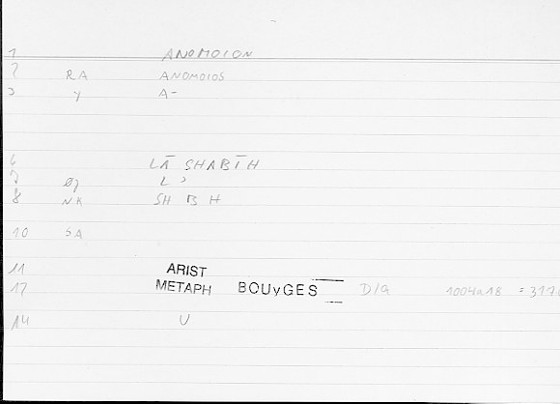 1 ANOMOION
2 RA ANOMOIOS
3 y A-
6 LĀ SHABĪH
7 L ʾ
8 NK SH B H
10 SA
11 ARIST
12 METAPH BOUyGES D/a 1004a18
14 U